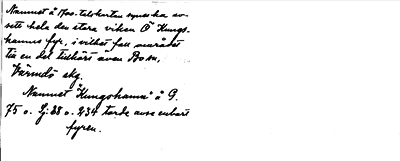 Namnet å 1700-talskartan synes ha av-
sett hela den stora viken Ö Kungs-
hamns fyr, i vilket fall området
till en del tillhört även Boson,
Värmdö skg.
Namnet "Kungshamn" å G.
75 o. Lj:88 o. 234 torde avse enbart
fyren.